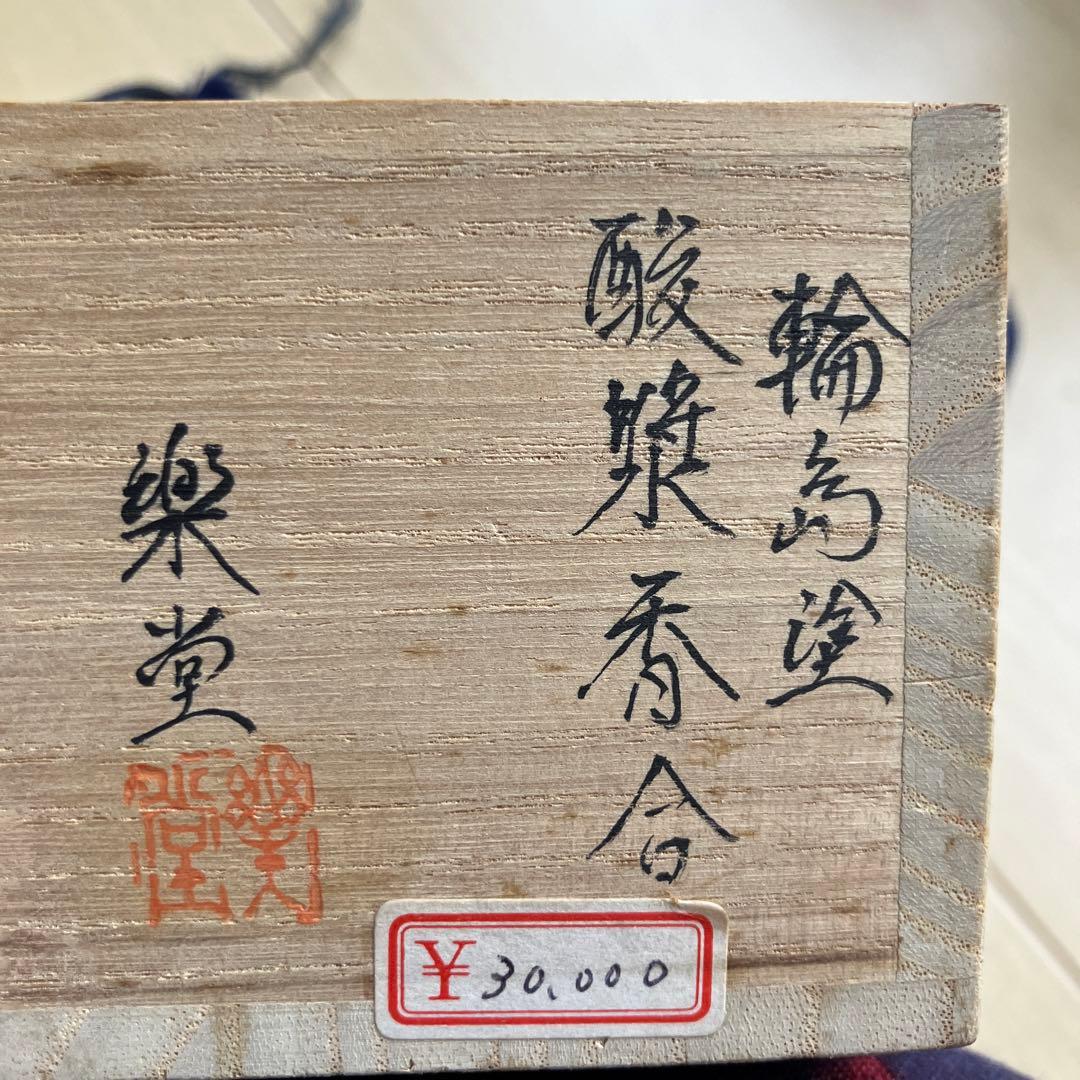 輪島塗
酸漿香合
樂堂
樂堂
¥30,000